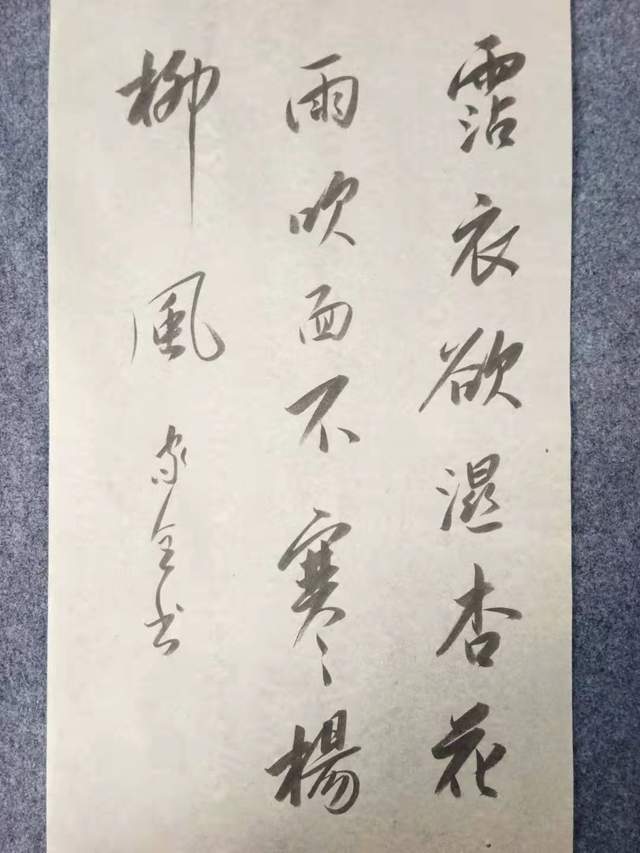 霑衣欲濕杏花
雨吹面不寒楊
柳風
家全书